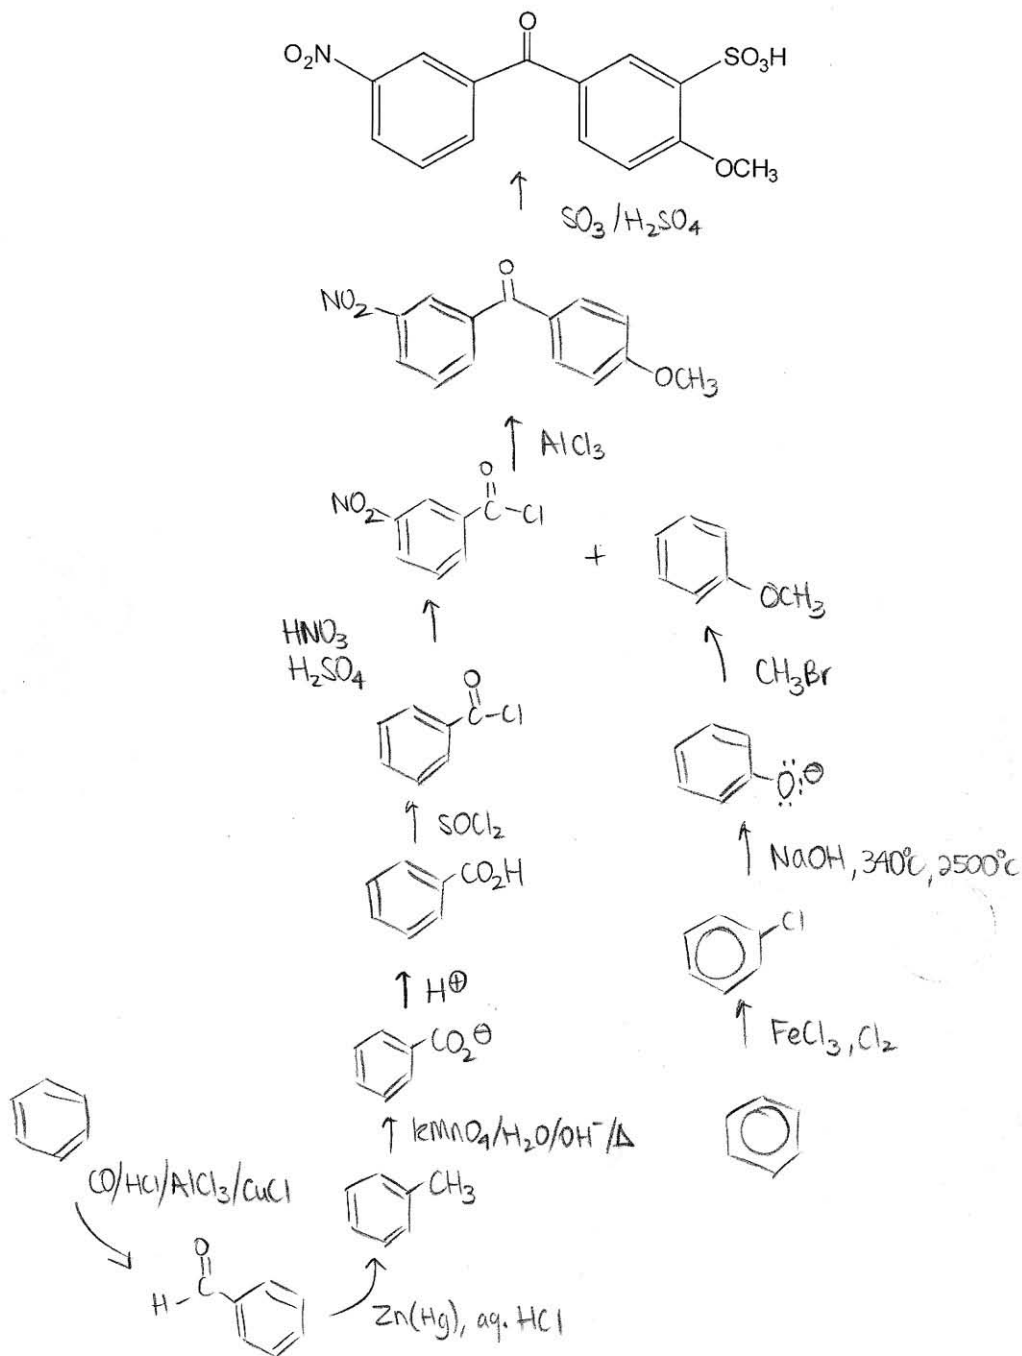 O
O₂N SO₃H
OCH₃
SO₃/H₂SO₄
O
NO₂
OCH₃
AlCl₃
O
NO₂ C-Cl
+
OCH₃
HNO₃
H₂SO₄
CH₃Br
O
C-Cl
:Ö:⊖
SOCl₂
NaOH, 340°C, 2500°C
CO₂H
Cl
H⊕
FeCl₃, Cl₂
CO₂⊖
KMnO₄/H₂O/OH⁻/Δ
CO/HCl/AlCl₃/CuCl
CH₃
O
H-C
Zn(Hg), aq. HCl